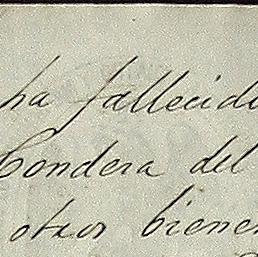 ha fallecido
Condesa del
otros bienes